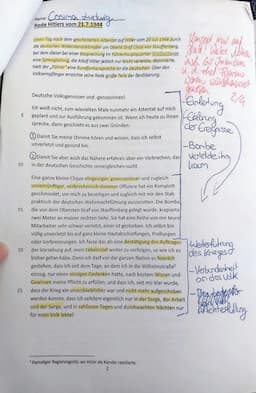 Name: Cosima
Rede Hitlers vom 21.7.1944
Einen Tag nach dem gescheiterten Attentat auf Hitler vom 20.Juli 1944 durch
die deutschen Widerstandskämpfer um Oberst Graf Claus von Stauffenberg,
bei dem dieser bei einer Besprechung im Führerhauptquartier
eine Sprengladung, die Adolf Hitler jedoch nur leicht verletzte,
hielt der „Führer“ eine Rundfunkansprache an die Deutschen. Über den
Volksempfänger erreichte seine Rede große Teile der Bevölkerung.
Deutsche Volksgenossen und -genossinnen!
Ich weiß nicht, zum wievielten Male nunmehr ein Attentat auf mich
geplant und zur Ausführung gekommen ist. Wenn ich heute zu Ihnen
spreche, dann geschieht es aus zwei Gründen:
1 Damit Sie meine Stimme hören und wissen, dass ich selbst
unverletzt und gesund bin.
2 Damit Sie aber auch das Nähere erfahren über ein Verbrechen, das
in der deutschen Geschichte seinesgleichen sucht.
10
Eine ganz kleine Clique ehrgeiziger, gewissenloser und zugleich
unvernünftiger, verbrecherisch-dummer Offiziere hat ein Komplott
geschmiedet, um mich zu beseitigen und zugleich mit mir den Stab
praktisch der deutschen Wehrmachtführung auszurotten. Die Bombe,
15
die von dem Obersten Graf von Stauffenberg gelegt wurde, krepierte
zwei Meter an meiner rechten Seite. Sie hat eine Reihe von mir teurer
Mitarbeiter sehr schwer verletzt, einer ist gestorben. Ich selbst bin
völlig unverletzt bis auf ganz kleine Hautabschürfungen, Prellungen
oder Verbrennungen. Ich fasse das als eine Bestätigung des Auftrages
20
der Vorsehung auf, mein Lebensziel weiter zu verfolgen, so wie ich es
bisher getan habe. Denn ich darf vor der ganzen Nation es feierlich
gestehen, dass ich seit dem Tage, an dem ich in die Wilhelmstraße¹
einzog, nur einen einzigen Gedanken hatte, nach bestem Wissen und
Gewissen meine Pflicht zu erfüllen; und dass ich, seit mir klar wurde,
25
dass der Krieg ein unausbleiblicher war und nicht mehr aufgeschoben
werden konnte, dass ich seitdem eigentlich nur in der Sorge, der Arbeit
und der Sorge, und in zahllosen Tagen und durchwachten Nächten nur
für mein Volk lebte!
¹ Damaliger Regierungssitz, wo Hitler als Kanzler residierte
2
-Einleitung
-Erklärung
der Ereignisse
-Bombe
-Weiterführung
des Krieges
-Verbundenheit
an das Volk